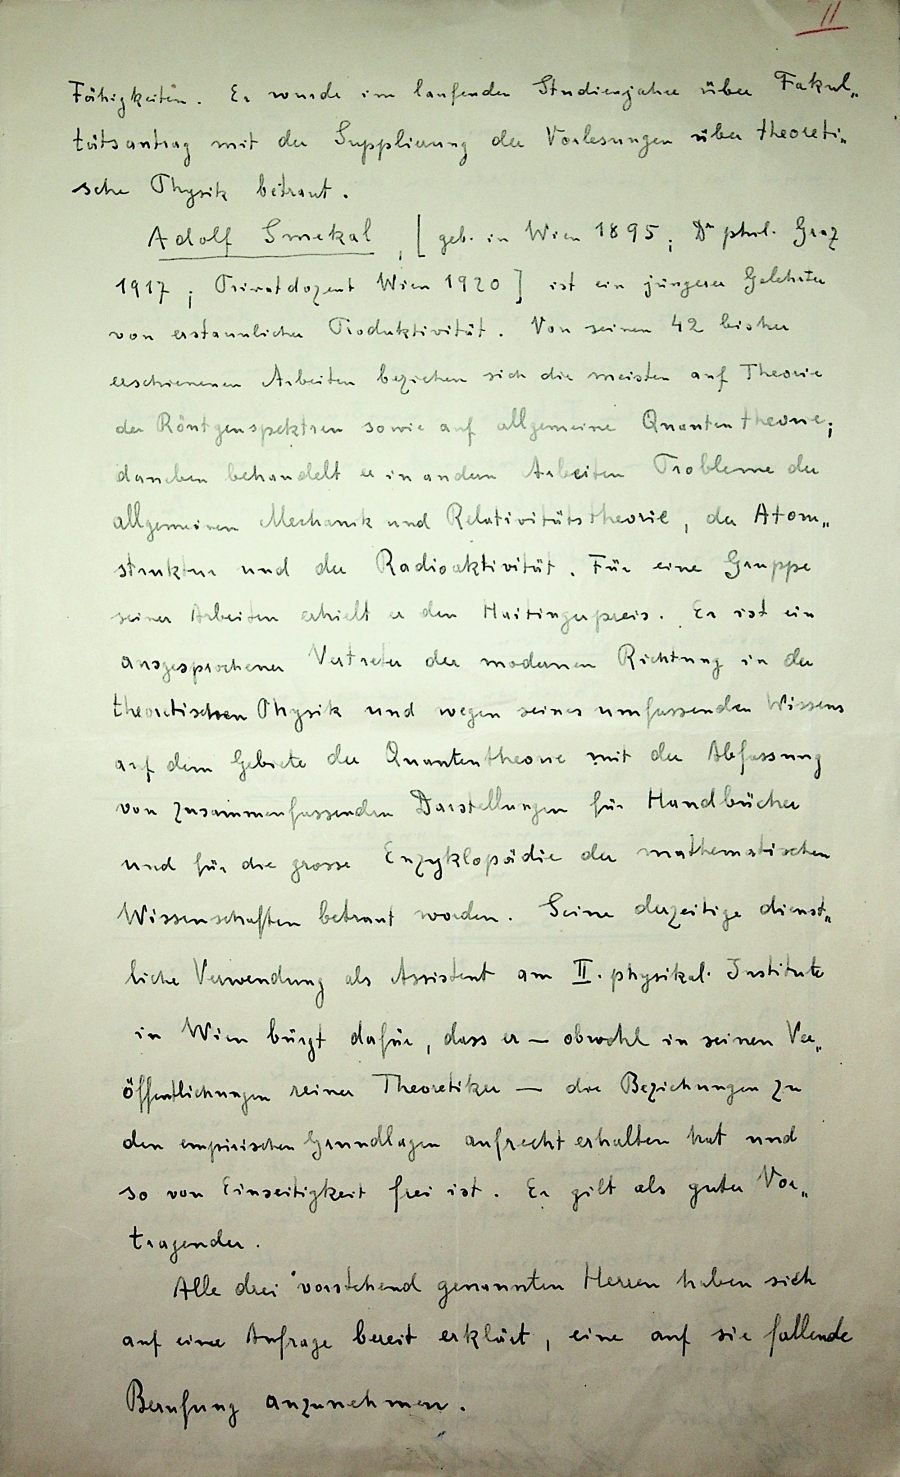 II
Fähigkeiten. Er wurde im laufenden Studienjahre über Fakul„
tätsantrag mit der Supplierung der Vorlesungen über theoreti„
sche Physik betraut.
Adolf Smekal, [geb. in Wien 1895; Dr phil. Graz
1917; Privatdozent Wien 1920] ist ein jüngerer Gelehrter
von erstaunlicher Produktivität. Von seinen 42 bisher
erschienenen Arbeiten beziehen sich die meisten auf Theorie
der Röntgenspektren sowie auf allgemeine Quantentheorie;
daneben behandelt er in andern Arbeiten Probleme der
allgemeinen Mechanik und Relativitätstheorie, der Atom„
struktur und der Radioaktivität. Für eine Gruppe
seiner Arbeiten erhielt er den Haitingerpreis. Er ist ein
ausgesprochener Vertreter der modernen Richtung in der
theoretischen Physik und wegen seines umfassenden Wissens
auf dem Gebiete der Quantentheorie mit der Abfassung
von zusammenfassenden Darstellungen für Handbücher
und für die grosse Enzyklopädie der mathematischen
Wissenschaften betraut worden. Seine derzeitige dienst„
liche Verwendung als Assistent am II. physikal. Institute
in Wien bürgt dafür, dass er — obwohl in seinen Ver„
öffentlichungen reiner Theoretiker — die Beziehungen zu
den empirischen Grundlagen aufrecht erhalten hat und
so von Einseitigkeit frei ist. Er gilt als guter Vor„
tragender.
Alle drei vorstehend genannten Herren haben sich
auf eine Anfrage bereit erklärt, eine auf sie fallende
Berufung anzunehmen.